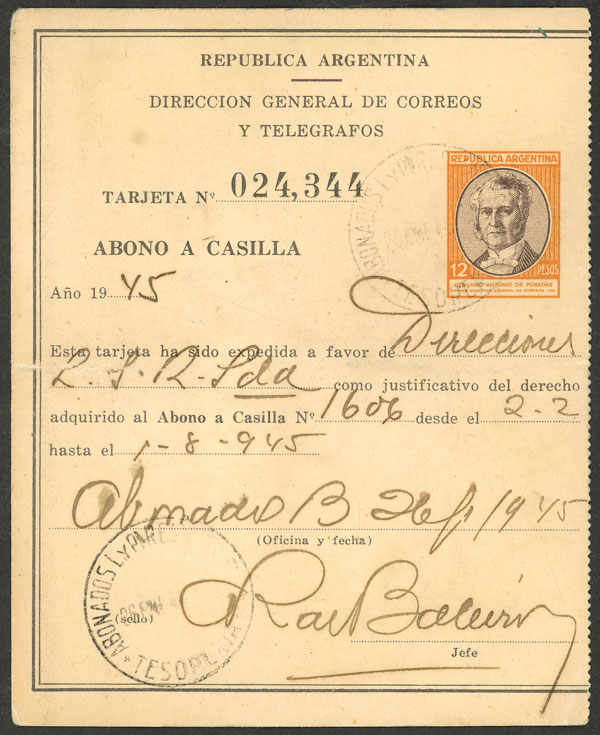 REPUBLICA ARGENTINA
DIRECCION GENERAL DE CORREOS
Y TELEGRAFOS
TARJETA Nº 024,344
REPUBLICA ARGENTINA
12 PESOS
GERVASIO ANTONIO DE POSADAS
ABONO A CASILLA
Año 1945
Esta tarjeta ha sido expedida a favor de Direcciones
como justificativo del derecho
adquirido al Abono a Casilla Nº 1606 desde el 2-2
hasta el 1-8-945
B 945
(Oficina y fecha)
ABONADOS L Y
TESORE
(sello)
Jefe